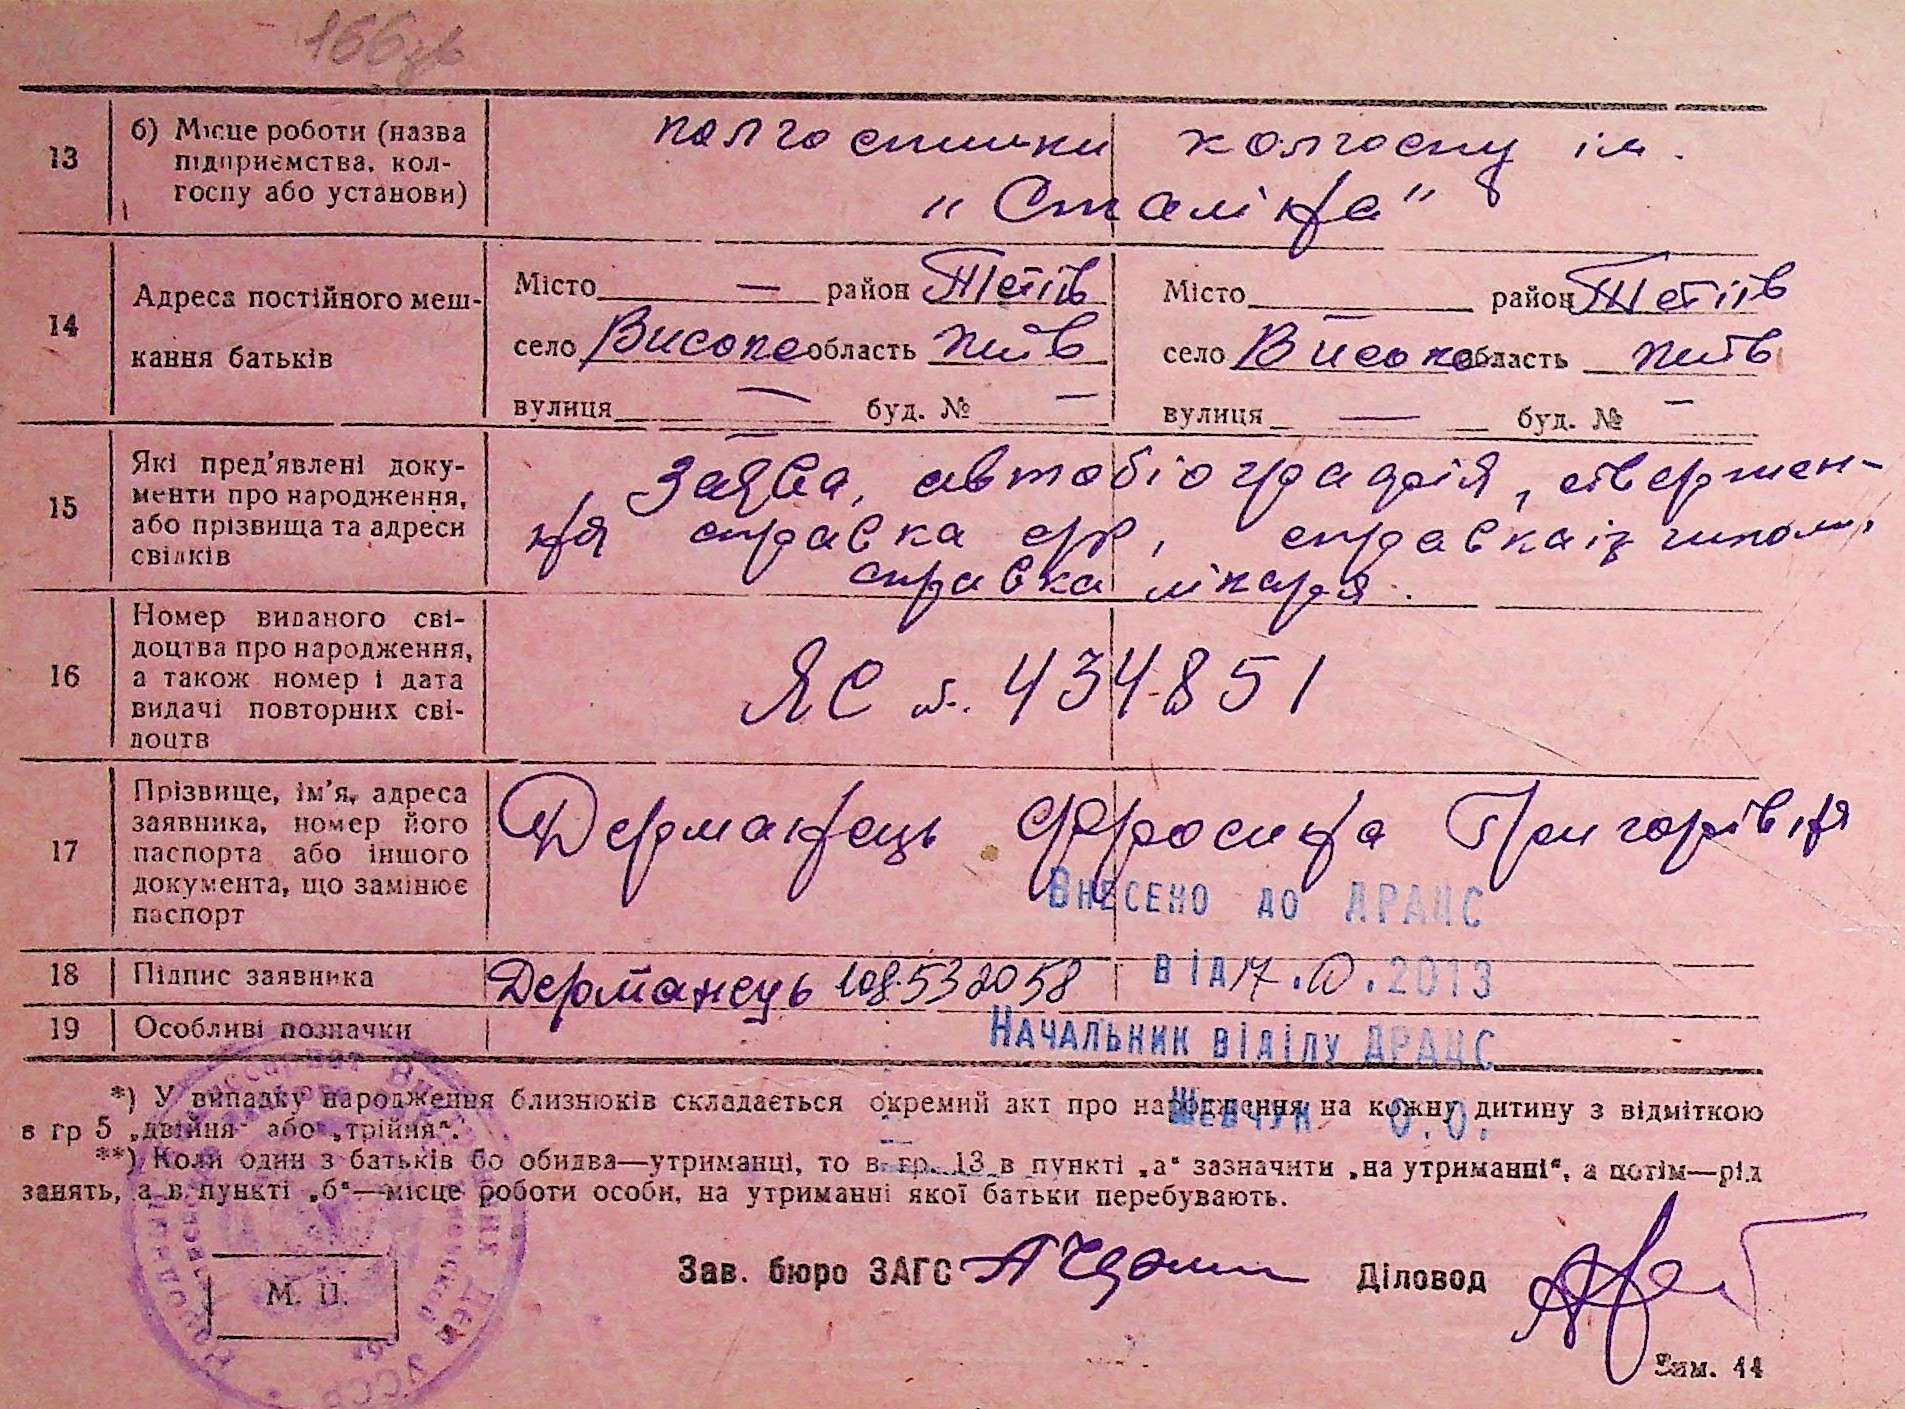 166зв
13
б) Місце роботи (назва
підприємства, кол-
госпу або установи)
колгоспники колгоспу ім.
"Сталіна"
14
Адреса постійного меш-
кання батьків
Місто — район Тетіїв
село Високе область Київ
вулиця — буд. № —
Місто — район Тетіїв
село Високе область Київ
вулиця — буд. № —
15
Які пред'явлені доку-
менти про народження,
або прізвища та адреси
свідків
Заява, автобіографія, ствержен-
ня справка с/р, справка із
справка лікаря.
16
Номер виданого сві-
доцтва про народження,
а також номер і дата
видачі повторних сві-
доцтв
ЯС №. 434851
17
Прізвище, ім'я, адреса
заявника, номер його
паспорта або іншого
документа, що замінює
паспорт
Дерманець Фросина Григорівня
Внесено до ДРАЦС
18
Підпис заявника
Дерманець 108532058
від 17. .2013
19
Особливі позначки
Начальник відділу ДРАЦС
Шевчук О.О.
*) У випадку народження близнюків складається окремий акт про народження на кожну дитину з відміткою
в гр 5 „двійня“ або „трійня“.
**) Коли один з батьків бо обидва—утриманці, то в гр. 13 в пункті „а“ зазначити „на утриманні“, а потім—рід
занять, а в пункті „б“—місце роботи особи, на утриманні якої батьки перебувають.
М. П.
УССР
Зав. бюро ЗАГС
Діловод
Зам. 44